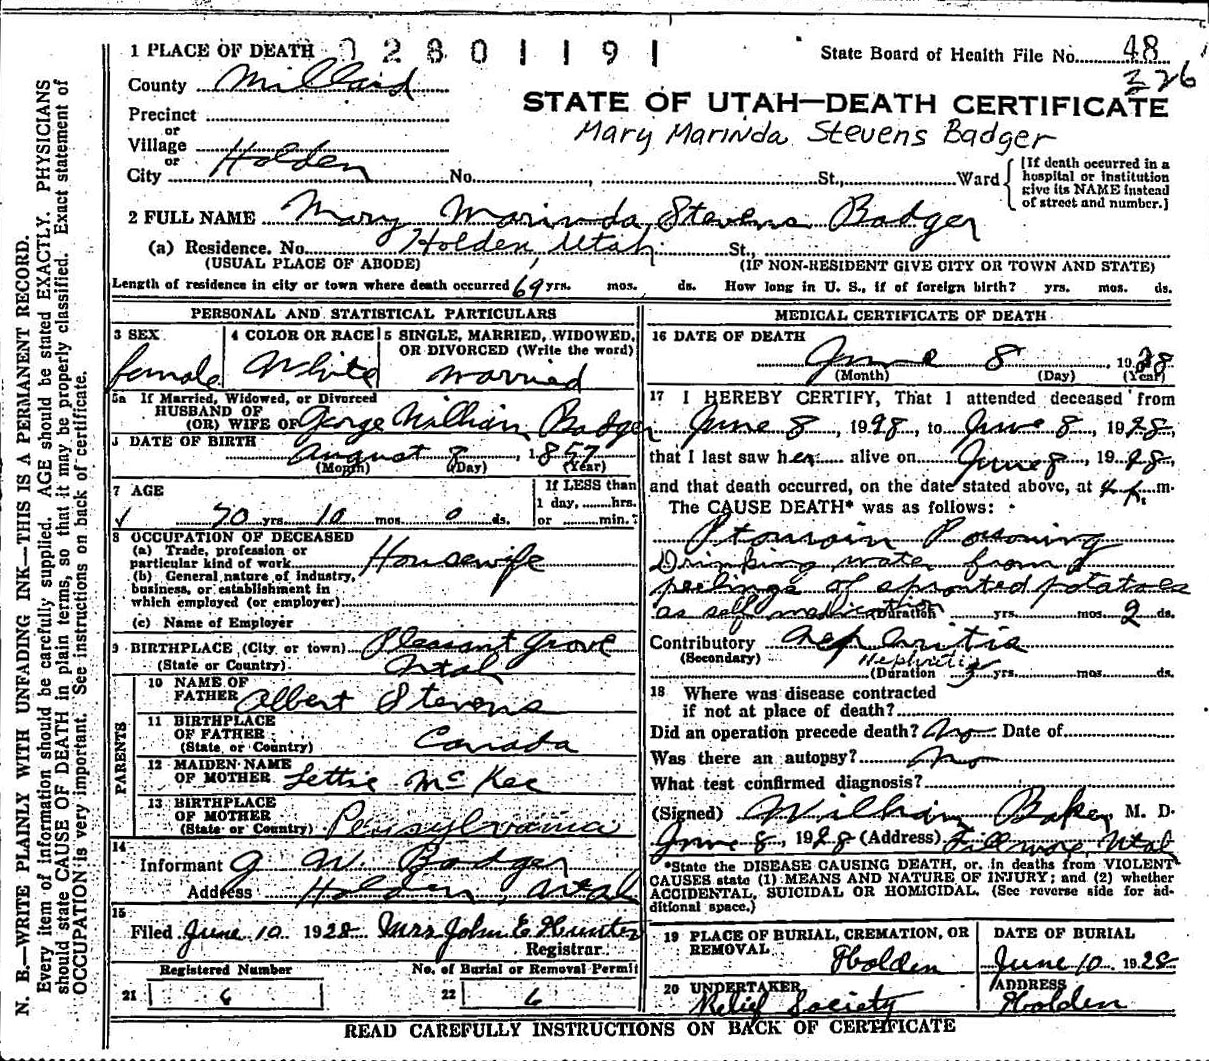 1 PLACE OF DEATH 02801191 State Board of Health File No. 48
326
County Millard
STATE OF UTAH—DEATH CERTIFICATE
Precinct
or
Village
or
Mary Marinda Stevens Badger
City Holden No. , St., Ward
[If death occurred in a
hospital or institution
give its NAME instead
of street and number.]
2 FULL NAME Mary Marinda Stevens Badger
(a) Residence. No. Holden, Utah St.,
(USUAL PLACE OF ABODE) (IF NON-RESIDENT GIVE CITY OR TOWN AND STATE)
Length of residence in city or town where death occurred 69 yrs. mos. ds. How long in U. S., if of foreign birth? yrs. mos. ds.
PERSONAL AND STATISTICAL PARTICULARS
3 SEX
female
4 COLOR OR RACE
White
5 SINGLE, MARRIED, WIDOWED,
OR DIVORCED (Write the word)
married
5a If Married, Widowed, or Divorced
HUSBAND OF
(OR) WIFE OF George William Badger
DATE OF BIRTH
August 8, 1857
(Month) (Day) (Year)
7 AGE
70 yrs. 10 mos. 0 ds.
If LESS than
1 day, hrs.
or min.?
8 OCCUPATION OF DECEASED
(a) Trade, profession or
particular kind of work Housewife
(b) General nature of industry,
business, or establishment in
which employed (or employer)
(c) Name of Employer
9 BIRTHPLACE (City or town) Pleasant Grove
(State or Country) Utah
PARENTS
10 NAME OF
FATHER Albert Stevens
11 BIRTHPLACE
OF FATHER
(State or Country) Canada
12 MAIDEN NAME
OF MOTHER Lettie McKee
13 BIRTHPLACE
OF MOTHER
(State or Country) Pennsylvania
14
Informant G W. Badger
Address Holden, Utah
15
Filed June 10 1928 Mrs John E Hunter
Registrar.
Registered Number No. of Burial or Removal Permit
21 6 22 6
MEDICAL CERTIFICATE OF DEATH
16 DATE OF DEATH
June 8, 1928
(Month) (Day) (Year)
17 I HEREBY CERTIFY, That I attended deceased from
June 8, 1928, to June 8, 1928,
that I last saw her alive on June 8, 1928
and that death occurred, on the date stated above, at m.
The CAUSE DEATH* was as follows:
Ptomain Poisoning
Drinking water from
peelings of sprouted potatoes
as self medication (Duration yrs. mos. 2 ds.
Contributory Nephritis
(Secondary) Nephritis
(Duration yrs. mos. ds.
18 Where was disease contracted
if not at place of death?
Did an operation precede death? No Date of
Was there an autopsy? no
What test confirmed diagnosis?
(Signed) William Baker, M. D.
June 8, 1928 (Address) Fillmore, Utah
*State the DISEASE CAUSING DEATH, or in deaths from VIOLENT
CAUSES state (1) MEANS AND NATURE OF INJURY; and (2) whether
ACCIDENTAL, SUICIDAL OR HOMICIDAL. (See reverse side for ad-
ditional space.)
19 PLACE OF BURIAL, CREMATION, OR
REMOVAL
Holden
DATE OF BURIAL
June 10 1928
20 UNDERTAKER
Relief Society
ADDRESS
Holden
READ CAREFULLY INSTRUCTIONS ON BACK OF CERTIFICATE
N. B.—WRITE PLAINLY WITH UNFADING INK—THIS IS A PERMANENT RECORD.
Every item of information should be carefully supplied. AGE should be stated EXACTLY. PHYSICIANS
should state CAUSE OF DEATH in plain terms, so that it may be properly classified. Exact statement of
OCCUPATION is very important. See instructions on back of certificate.